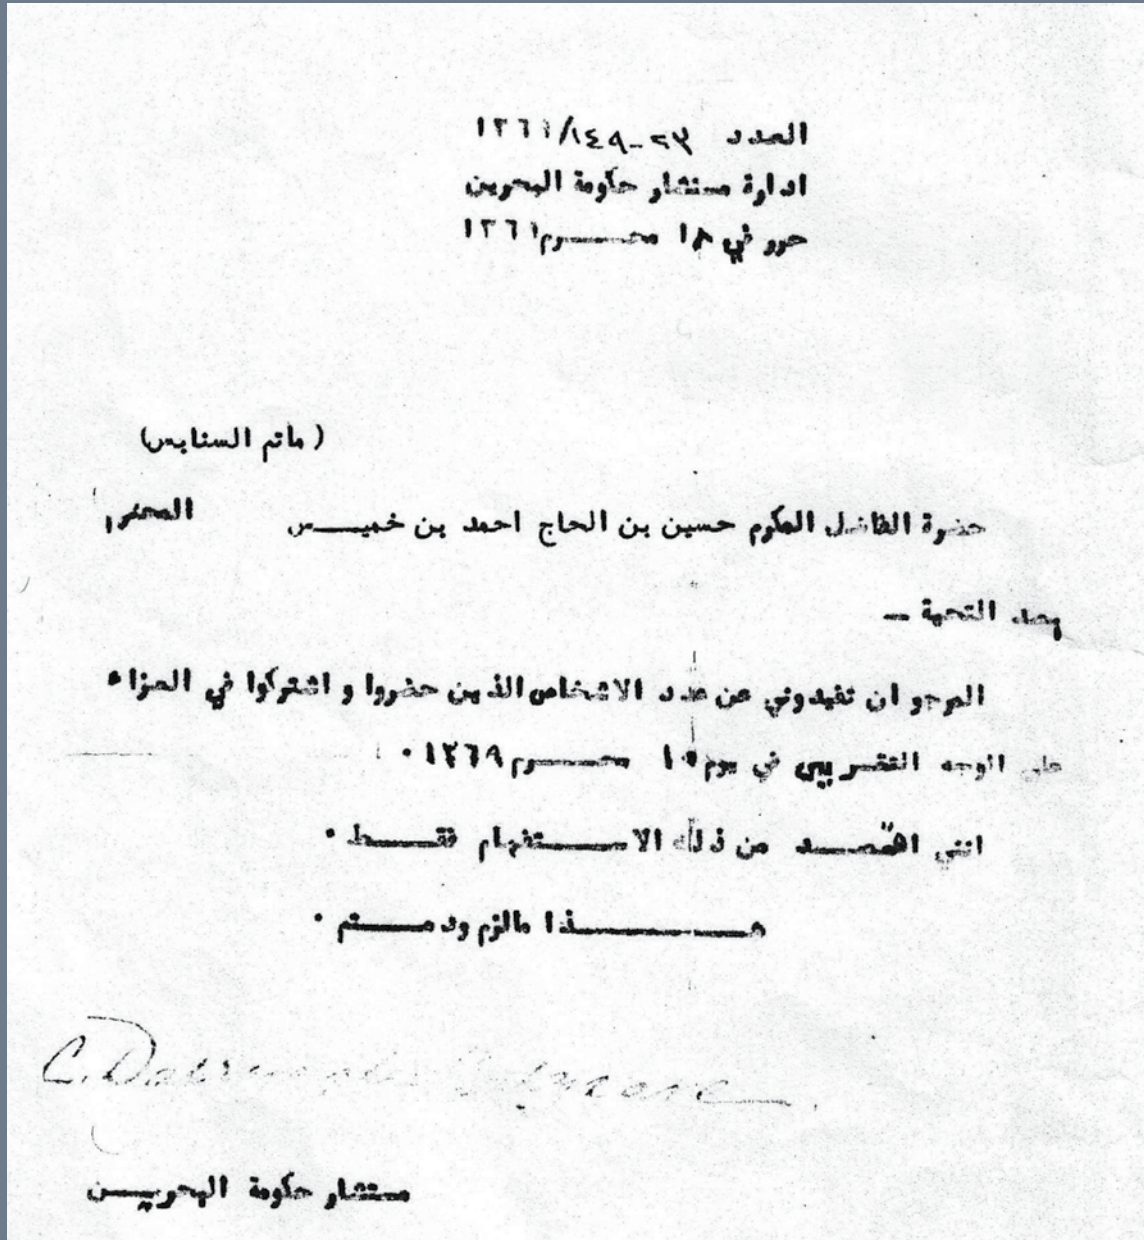 العدد ٢٣-١٤٩/١٣٦٩
ادارة مستشار حكومة البحرين
حرر في ١٨ محـــــرم ١٣٦٩
(ماتم السنابس)
حضرة الفاضل المكرم حسين بن الحاج احمد بن خميـــس المحترم
بعد التحية –
المرجو ان تفيدوني عن عدد الاشخاص الذين حضروا و اشتركوا في العزاء
على الوجه التقريبي في يوم ١٠ محـــــرم ١٣٦٩ ٠
انني اقصـــد من ذلك الاســـتفهام فقـــط ٠
هـــــــذا مالزم ودمـــتم ٠
C. Dalrymple Belgrave
مستشار حكومة البحريـــن